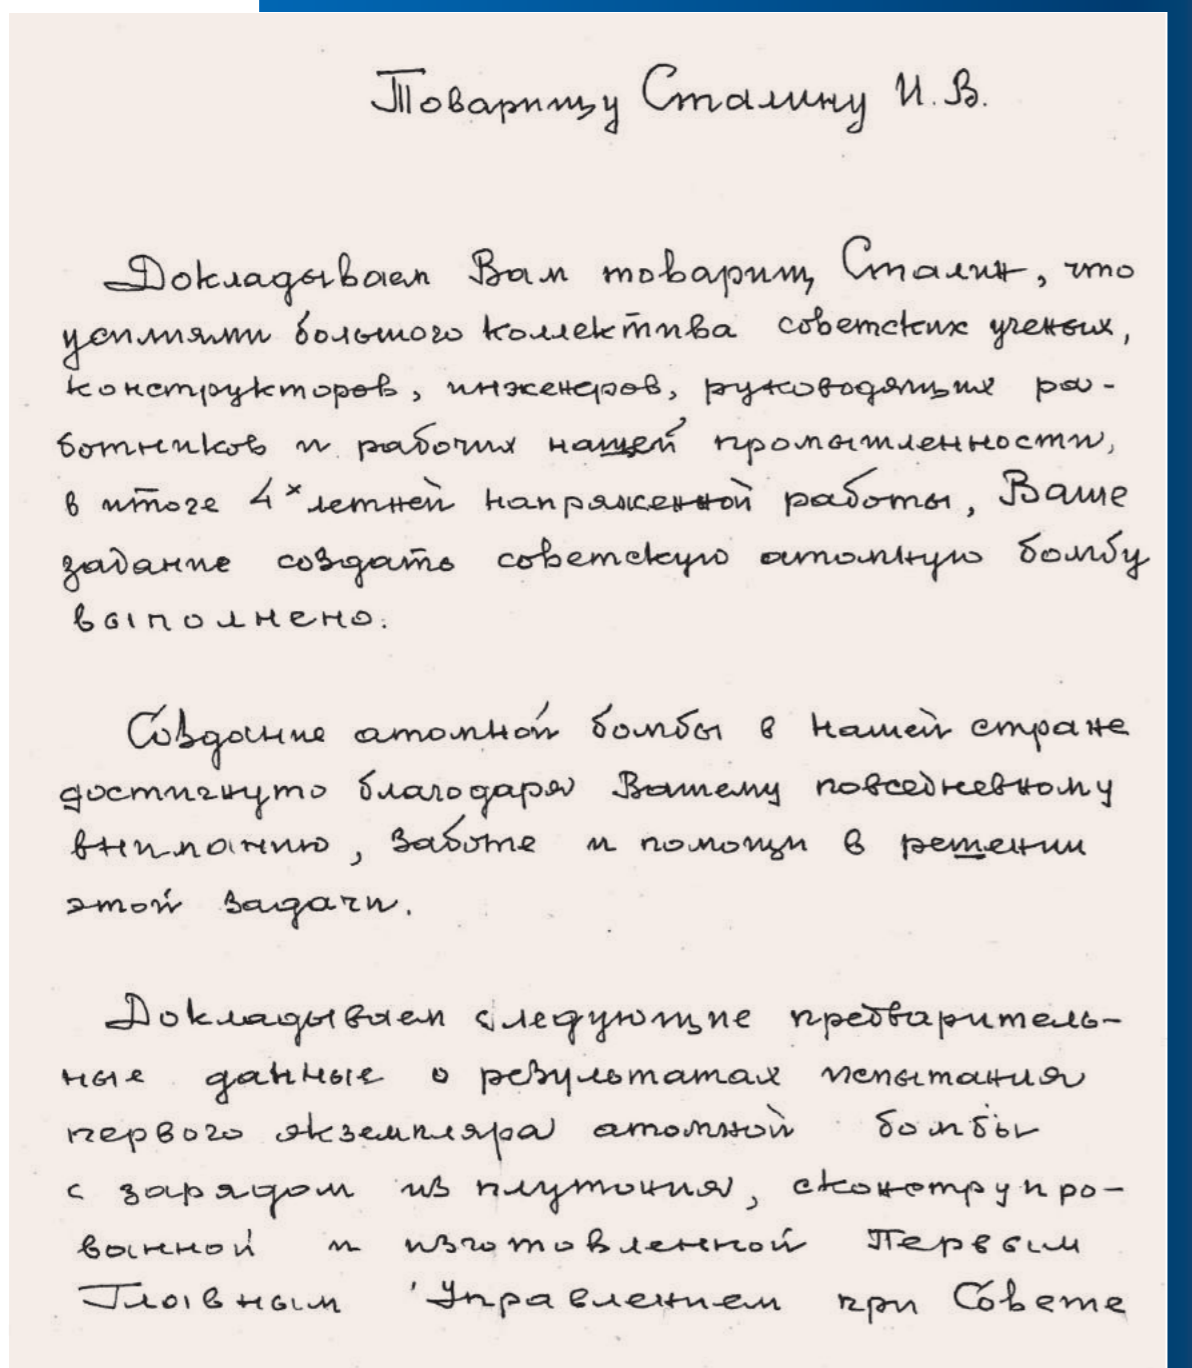 Товарищу Сталину И.В.
Докладываем Вам товарищ Сталин, что
усилиями большого коллектива советских ученых,
конструкторов, инженеров, руководящих ра-
ботников и рабочих нашей промышленности,
в итоге 4х летней напряженной работы, Ваше
задание создать советскую атомную бомбу
выполнено.
Создание атомной бомбы в нашей стране
достигнуто благодаря Вашему повседневному
вниманию, заботе и помощи в решении
этой задачи.
Докладываем следующие предваритель-
ные данные о результатах испытания
первого экземпляра атомной бомбы
с зарядом из плутония, сконструиро-
ванной и изготовленной Первым
Главным Управлением при Совете